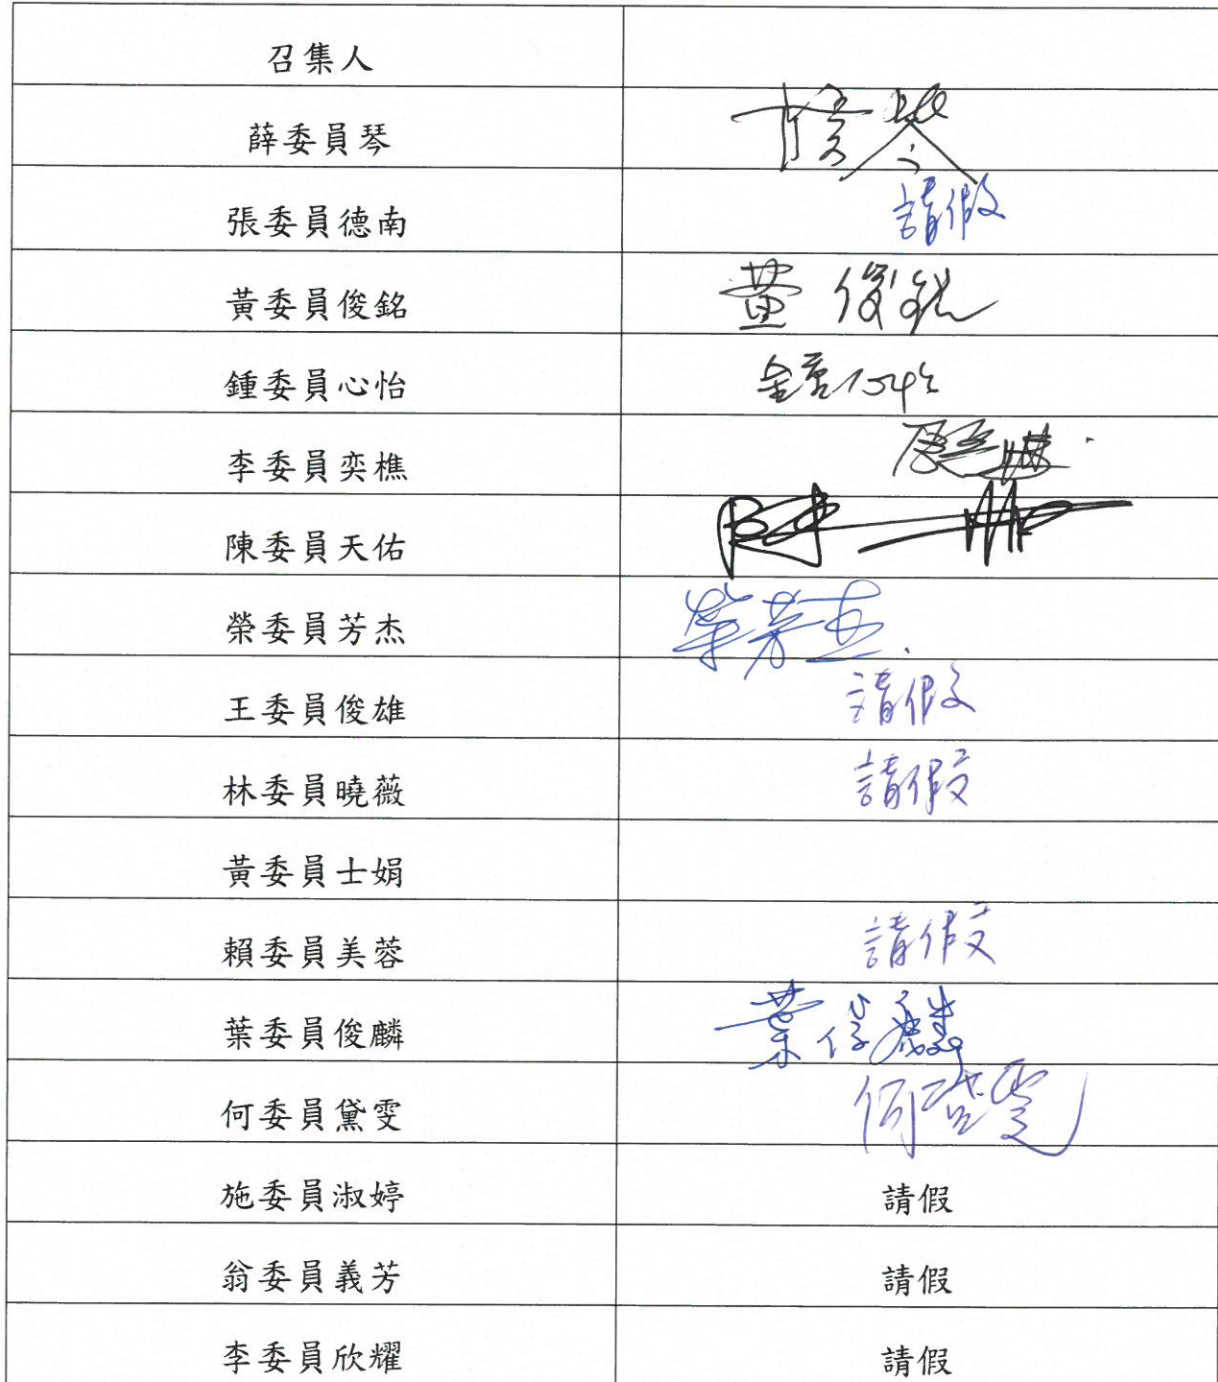 召集人
薛委員琴
張委員德南 請假
黃委員俊銘 黃俊銘
鍾委員心怡 鍾心怡
李委員奕樵
陳委員天佑 陳
榮委員芳杰 榮芳杰
王委員俊雄 請假
林委員曉薇 請假
黃委員士娟
賴委員美蓉 請假
葉委員俊麟 葉俊麟
何委員黛雯 何黛雯
施委員淑婷 請假
翁委員義芳 請假
李委員欣耀 請假